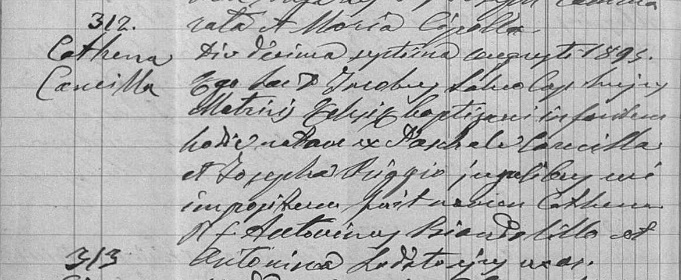 312.
Cathena
Cancilla
rata A Maria Cipolla
Die decima septima augusti 1895.
Ego Sac D Jacobus Cap hujus
Matricis baptizavi infantem
hodie natam ex Paschale Cancilla
et Josepha Riggio jugalibus cui
impositum fuit nomen Cathena
P. f. Antoninus et
Antonina uxor.
313